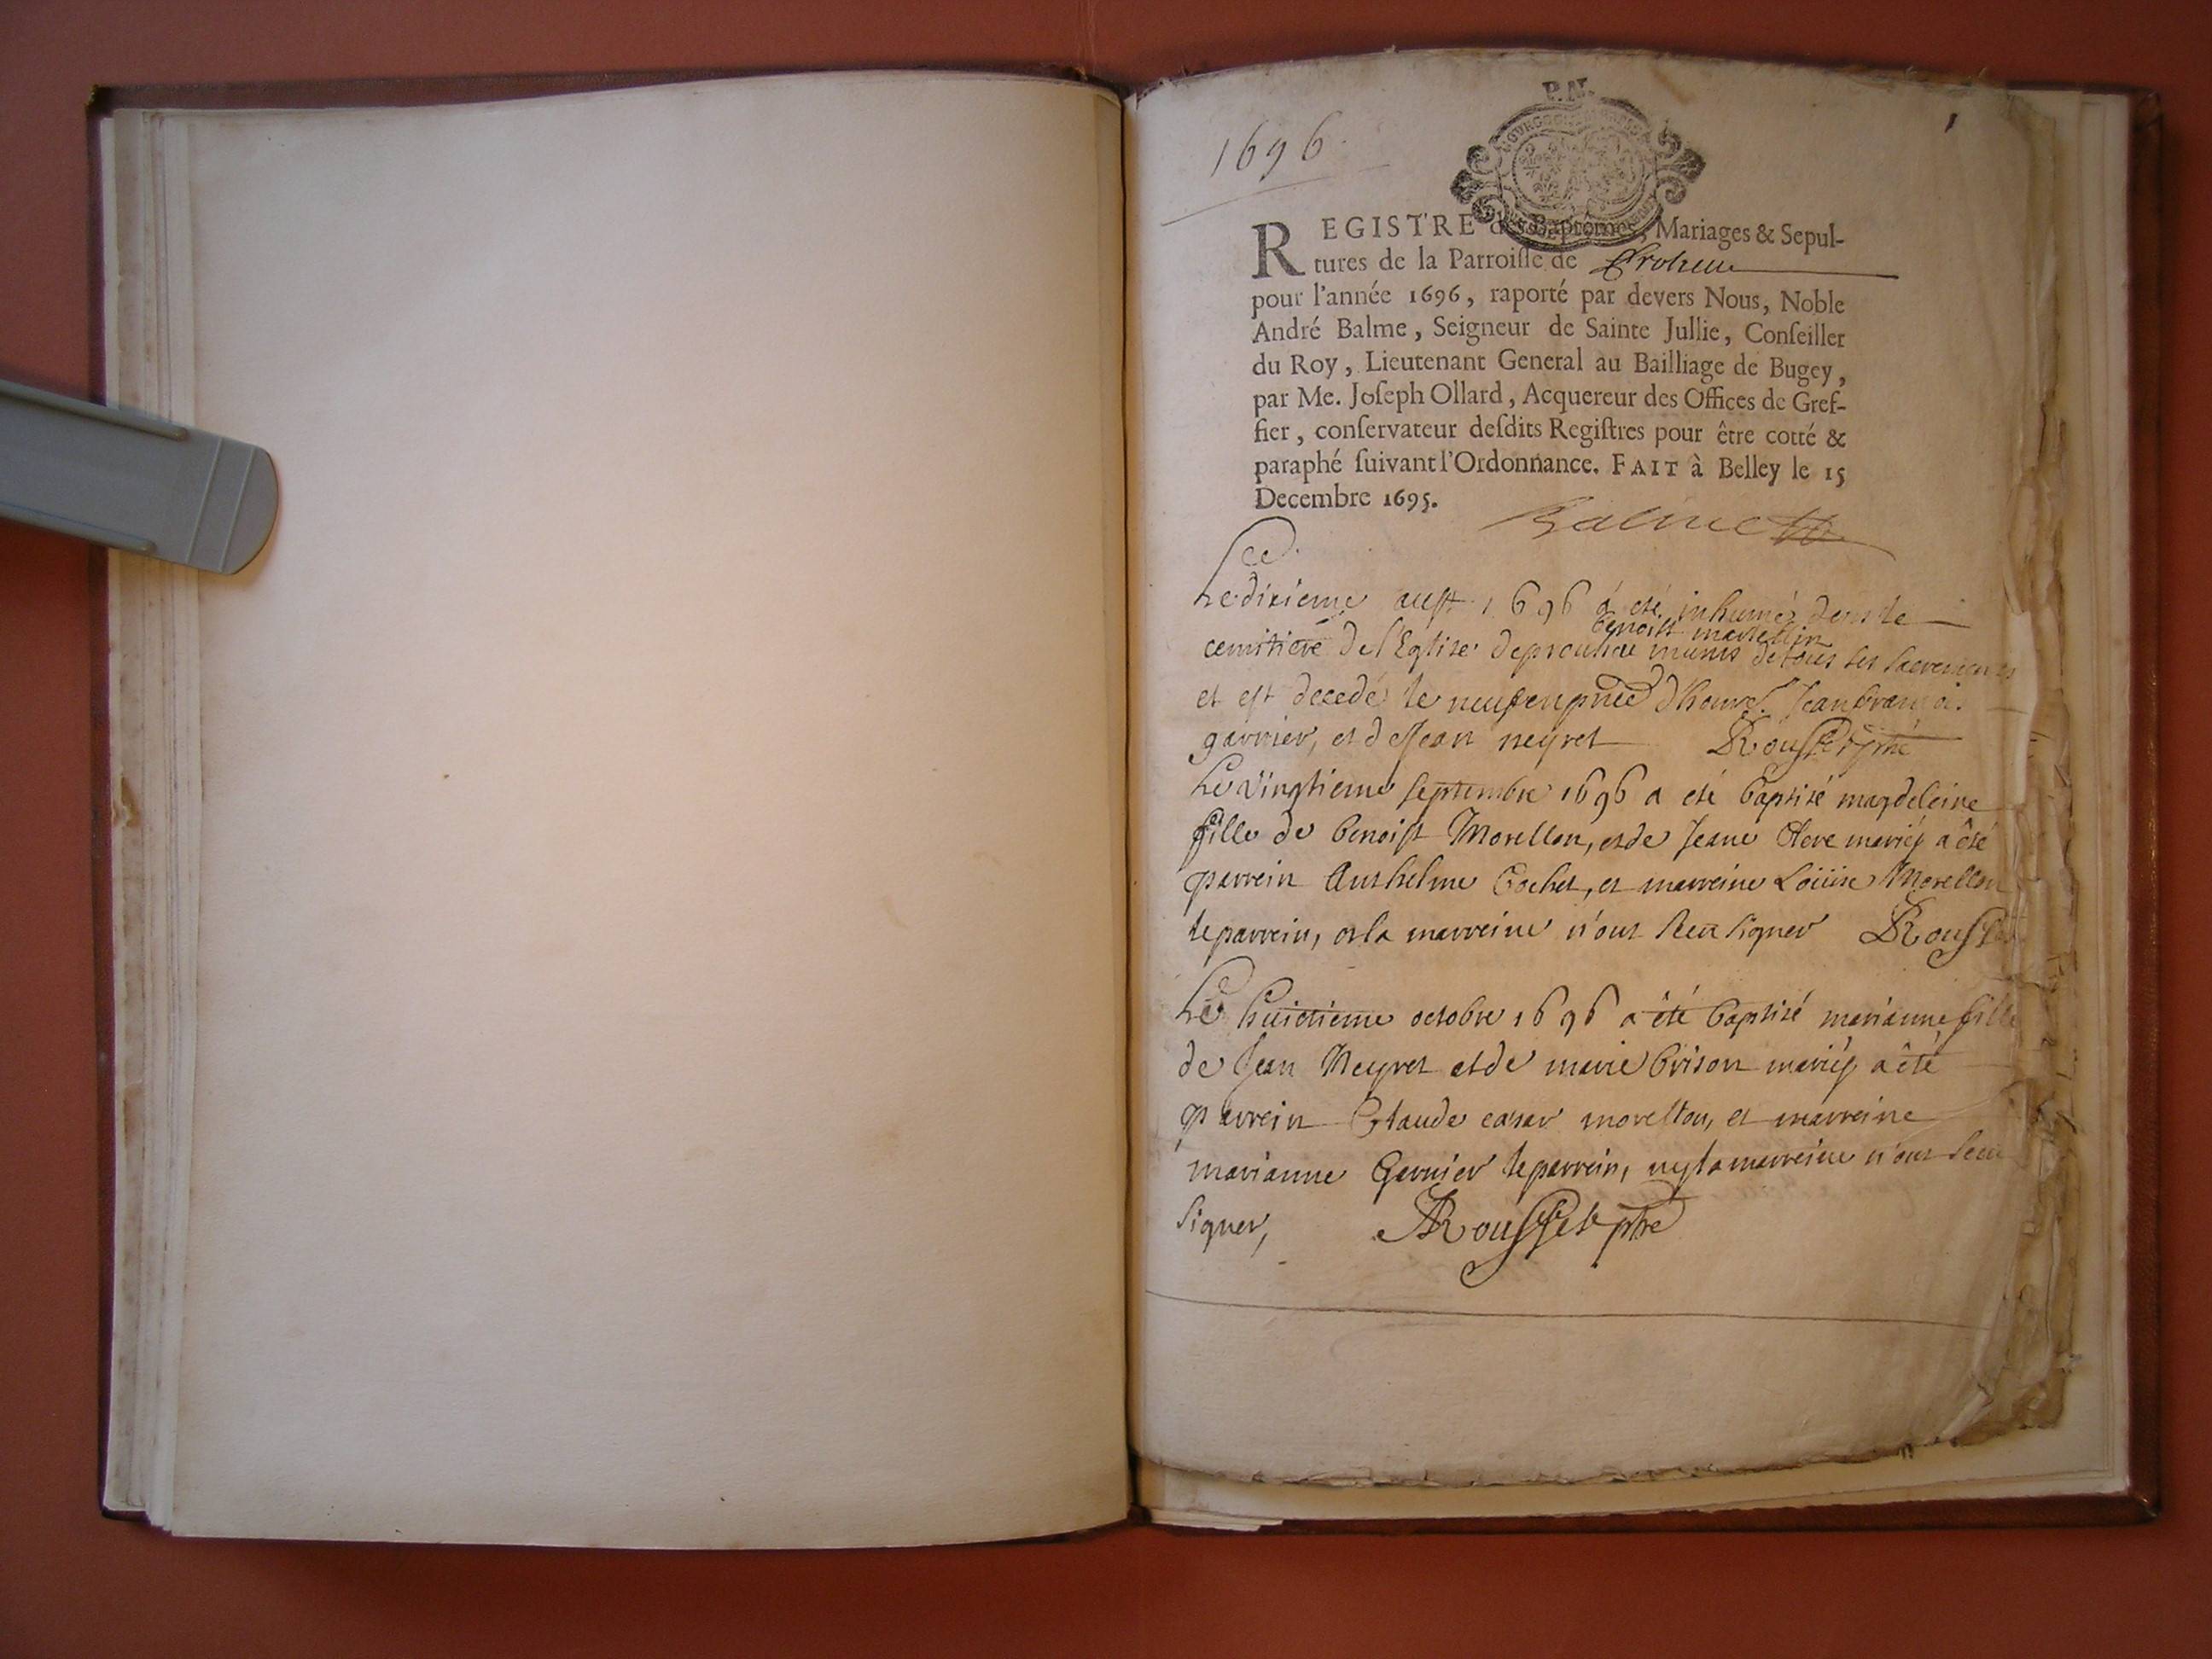 P.N.
1
1696
REGISTRE des Baptêmes, Mariages & Sepul-
tures de la Parroisse de
pour l'année 1696, raporté par devers Nous, Noble
André Balme, Seigneur de Sainte Jullie, Conseiller
du Roy, Lieutenant General au Bailliage de Bugey,
par Me. Joseph Ollard, Acquereur des Offices de Gref-
fier, conservateur desdits Registres pour être cotté &
paraphé suivant l'Ordonnance. FAIT à Belley le 15
Decembre 1695.
Balme
Le dixieme aust 1696 a eté inhumé dens le
benoist
cemitiere de l'Eglise de munis de tous ses sacremens
et est decedé le en d'houx. Jean françois
garnier, et de Jean neyret Rousset ptre
Le vingtieme septembre 1696 a eté baptisé magdeleine
fille de benoist Morellon, et de Jeane mariés a êté
parrein Anthelme Cochet, et marreine Loüise Morellon
le parrein, et la marreine n'ont sceu signer Rousset
Le huictieme octobre 1696 a êté baptisé marianne fille
de Jean Neyret et de marie brison mariés a êté
parrein Claude cæsar morellon, et marreine
marianne Garnier le parrein, ny la marreine n'ont sceu
signer, Rousset ptre